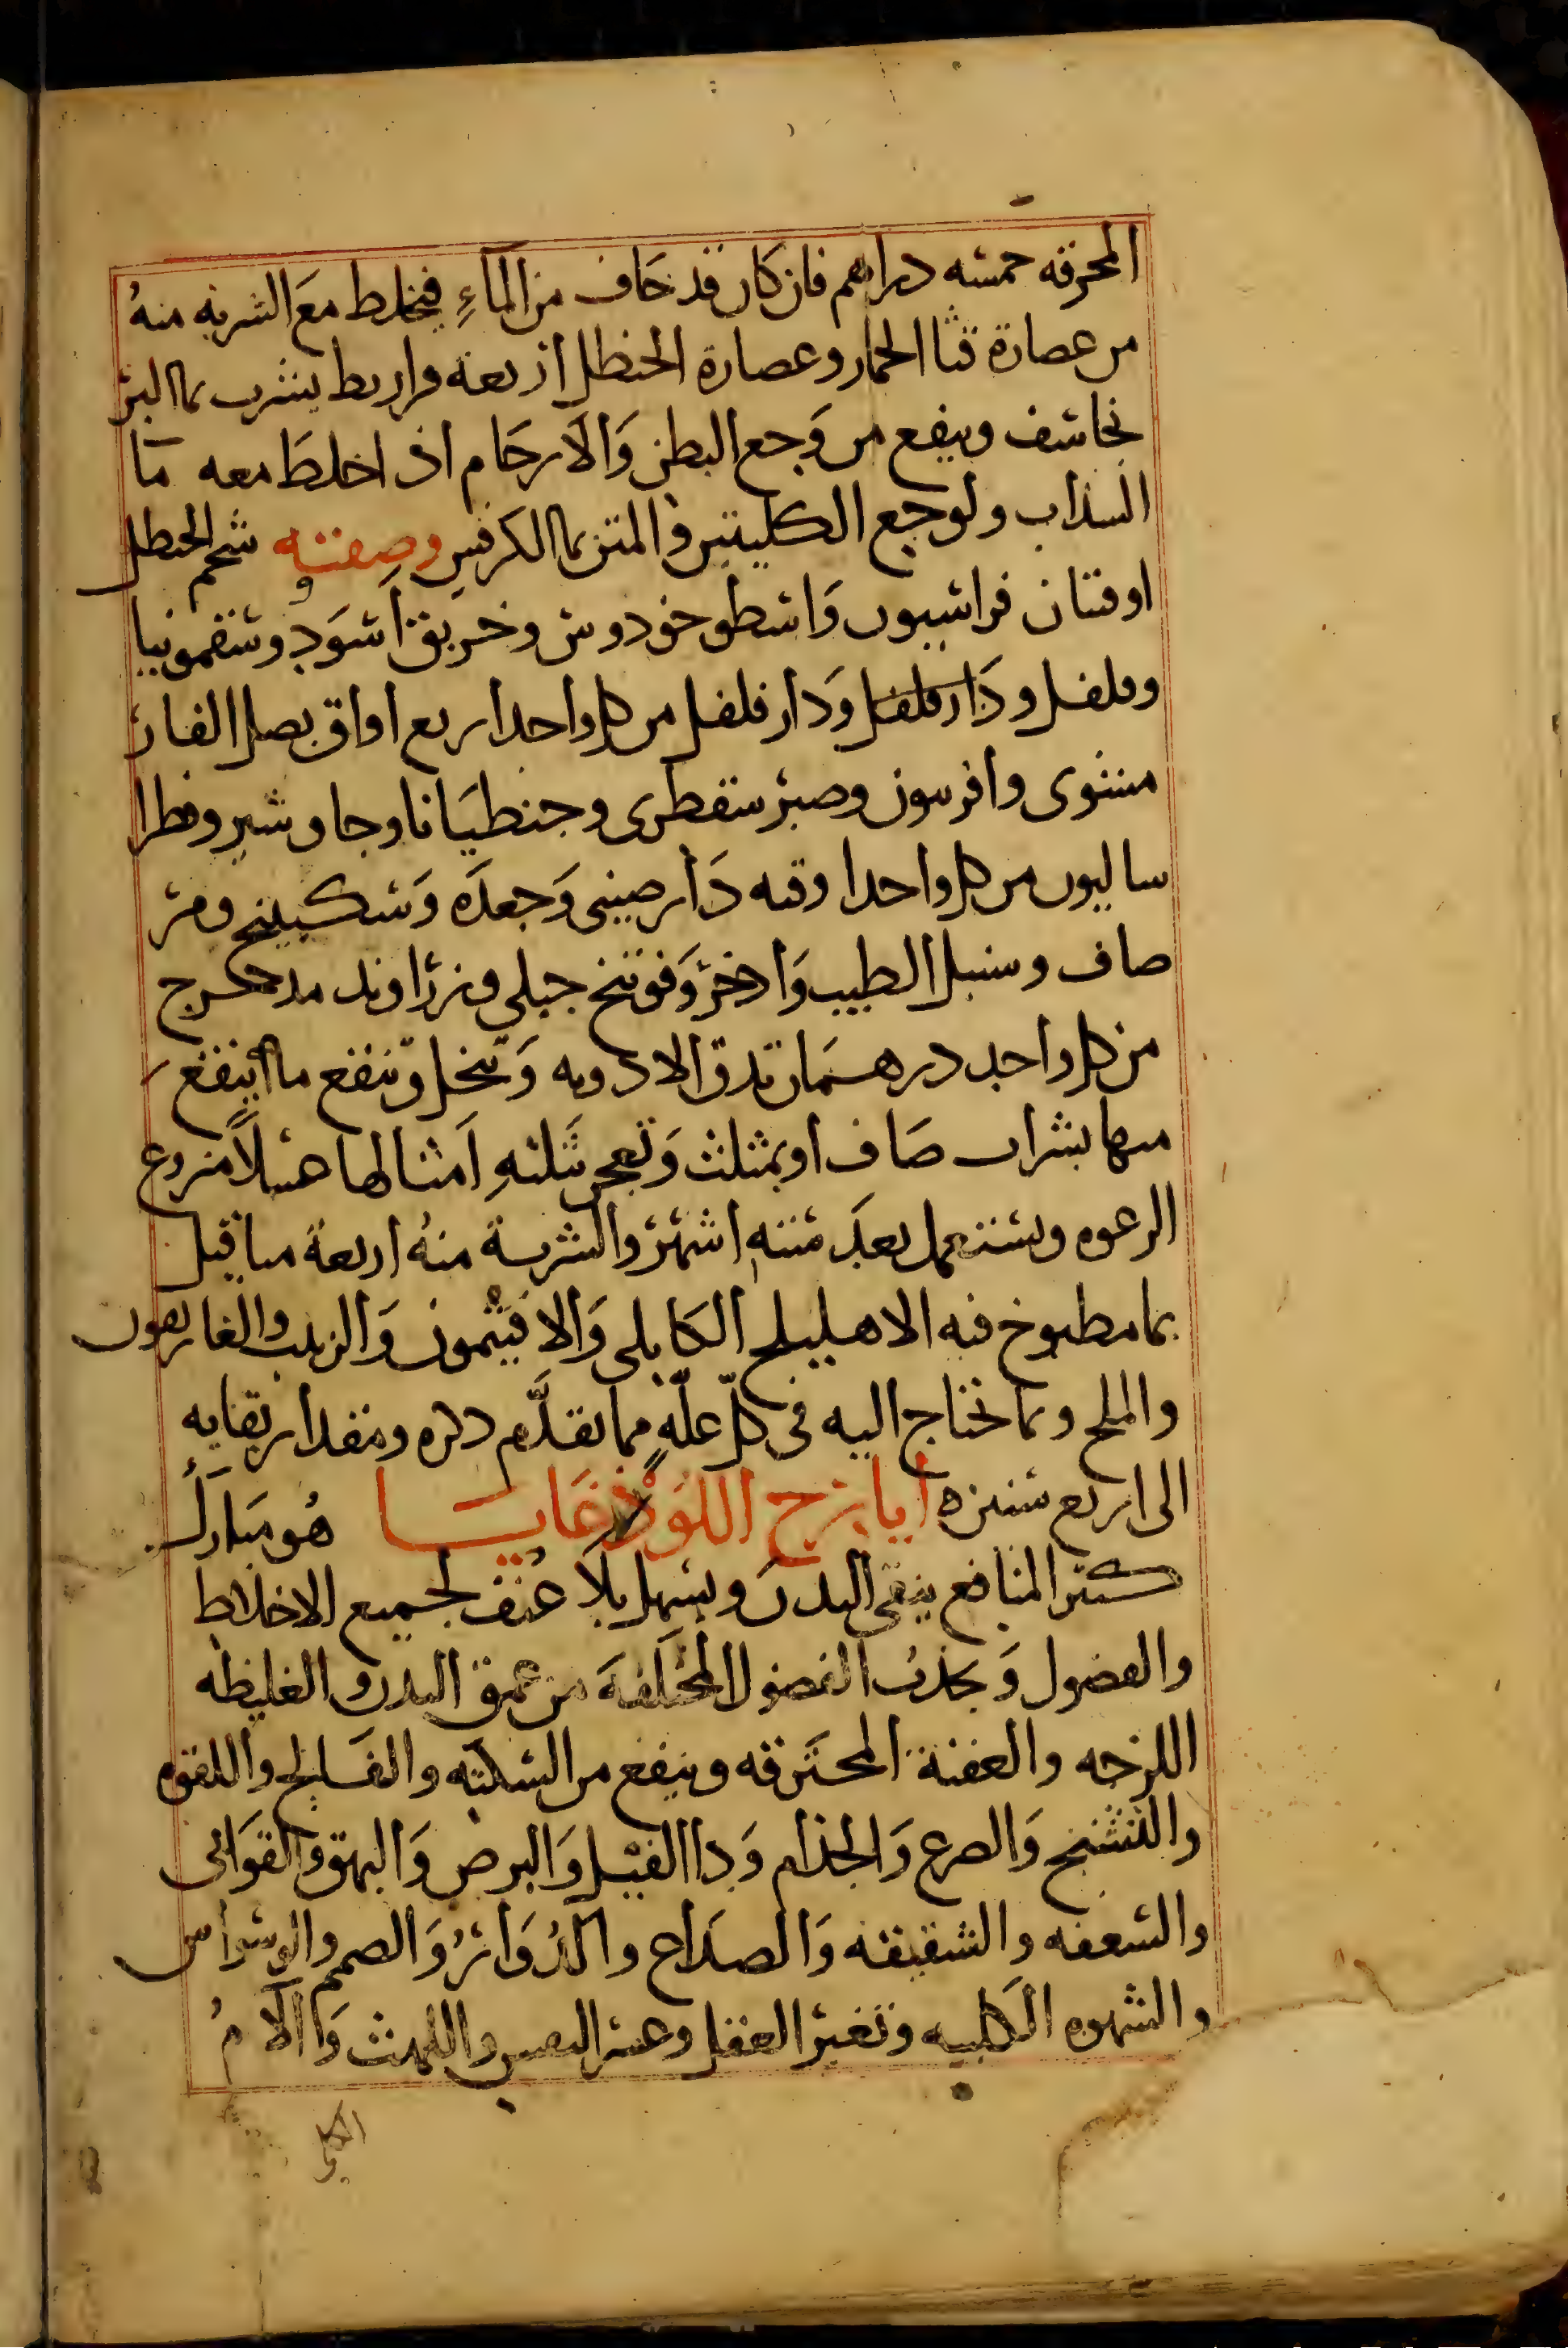 المحرقه خمسه دراهم فان كان قد خاف من الماءِ فيخلط معَ الشربه منهُ
من عصارة قثا الحمار وعصارة الحنظل اربعة قراريط يشرب بما البزر
نجاسف وينفع من وَجع البطن وَالارحَام اذ اخلطَ معه مآ
السذاب ولوجع الكليتين والمتن بما الكرفس وصفته شحم الحنظل
اوقتان فراسيون وَاسطوخودوس وخربق اَسوَد وسقمونيا
وفلفل ودَار فلفل وَدار فلفل من كل واحد اربع اواق بصل الفار
مشوى وافربيون وصبر سقطرى وجنطيَانا وجاوشير وفطرا
ساليون من كل واحد اوقيه دَارصينى وَجعدَه وَسكبينج ومر
صاف وسنبل الطيب وَاذخر وَفوتنج جبلى وزراوند مدحرج
من كل واحد درهمَان تدق الادويه وَتنخل وَينقع ما اَينقع
منها بشراب صَاف او بمثلث وَتعجن بثلثهِ اَمثالها عسلاً منزوع
الرغوه ويستعمل بعدَ ستهِ اشهر والشربة منهُ اربعة مثاقيل
بما مطبوخ فيه الاهليلج الكابلى وَالافيثمون وَالزبيب والغاريقون
والملح وبما تحتاج اليه فى كلّ علّهٍ مما تقدَّم ذكره ومقدار بقايه
الى اربع سنين ايارج اللوذغايا هُو مبَارك
كثير المنافع ينقى البدنَ ويسهل بلاَ عُنف لجميع الاخلاط
والفضول وَيجذبُ الفضول المختَلفهَ من عمق البدن والغليظه
اللزجه والعفنة المحترقه وينفع من السكته والفَالج واللقوه
والتشنج وَالصرع وَالجذام وَدا الفيل وَالبرص وَالبهق والقوَابى
والسعفه والشقيقه وَالصدَاع والدُوَائر وَالصمم والوسواس
والشهوه الكلبيه وتغير العقل وعسر النفس واللهث وَاالامُ
الكلى